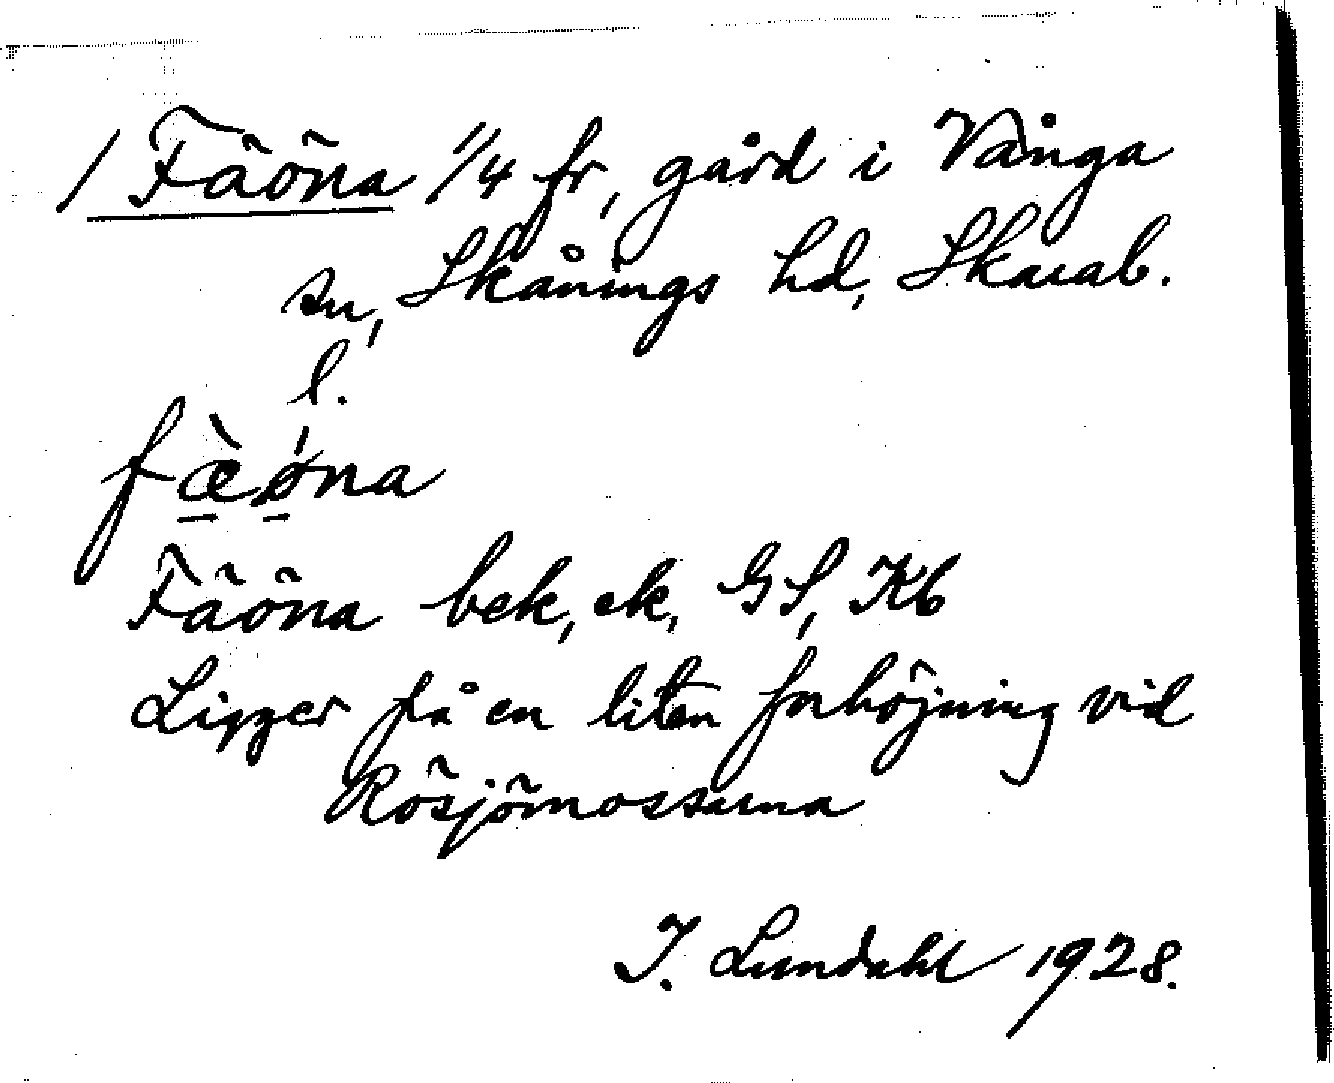 / Fäöna 1/4 fr, gård i Vånga
sn, Skånings hd, Skarab.
l.
fæ̀ǿna
Fäöna bek, ek, GS, Kb
Ligger på en liten förhöjning vid
Rösjömossarna
I. Lundahl 1928.